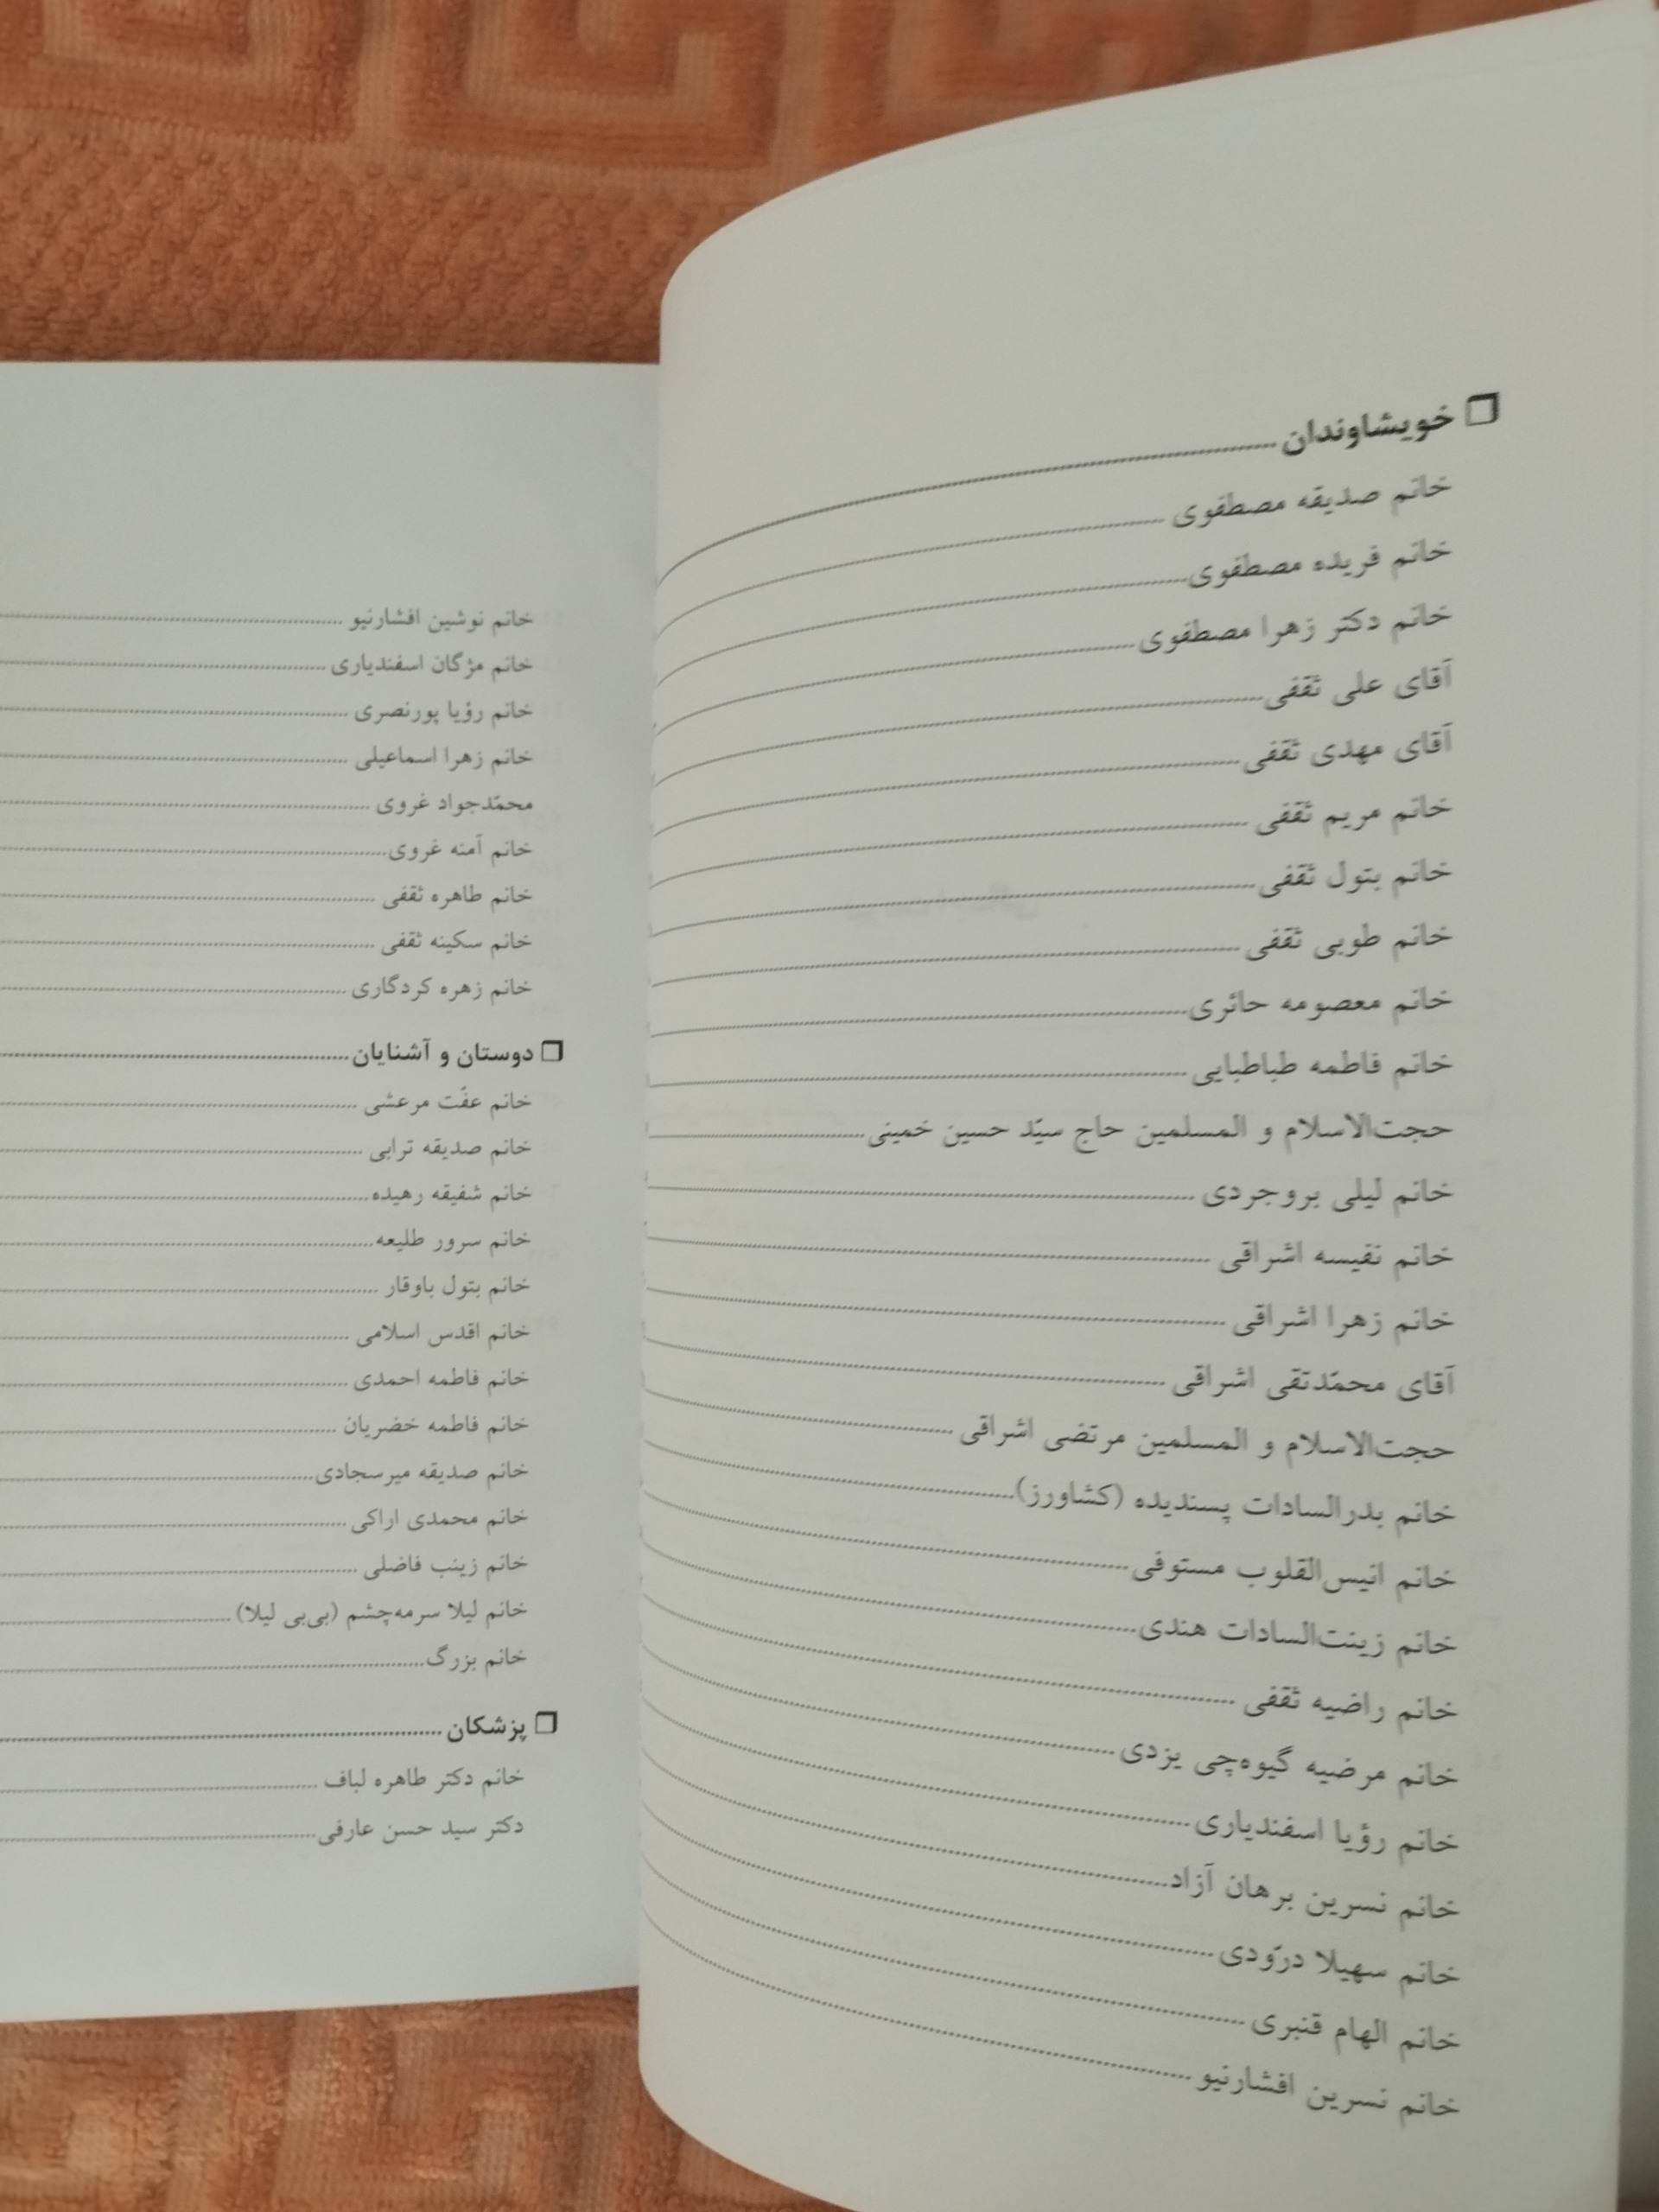 ❐ خویشاوندان
خانم صدیقه مصطفوی
خانم فریده مصطفوی
خانم دکتر زهرا مصطفوی
آقای علی ثقفی
آقای مهدی ثقفی
خانم مریم ثقفی
خانم بتول ثقفی
خانم طوبی ثقفی
خانم معصومه حائری
خانم فاطمه طباطبایی
حجت‌الاسلام و المسلمین حاج سیّد حسین خمینی
خانم لیلی بروجردی
خانم نفیسه اشراقی
خانم زهرا اشراقی
آقای محمّدتقی اشراقی
حجت‌الاسلام و المسلمین مرتضی اشراقی
خانم بدرالسادات پسندیده (کشاورز)
خانم انیس‌القلوب مستوفی
خانم زینت‌السادات هندی
خانم راضیه ثقفی
خانم مرضیه گیوه‌چی یزدی
خانم رؤیا اسفندیاری
خانم نسرین برهان آزاد
خانم سهیلا درّودی
خانم الهام قنبری
خانم نسرین افشارنیو
خانم نوشین افشارنیو
خانم مژگان اسفندیاری
خانم رؤیا پورنصری
خانم زهرا اسماعیلی
محمّدجواد غروی
خانم آمنه غروی
خانم طاهره ثقفی
خانم سکینه ثقفی
خانم زهره کردگاری
❐ دوستان و آشنایان
خانم عفّت مرعشی
خانم صدیقه ترابی
خانم شفیقه رهیده
خانم سرور طلیعه
خانم بتول باوقار
خانم اقدس اسلامی
خانم فاطمه احمدی
خانم فاطمه خضریان
خانم صدیقه میرسجادی
خانم محمدی اراکی
خانم زینب فاضلی
خانم لیلا سرمه‌چشم (بی‌بی لیلا)
خانم بزرگ
❐ پزشکان
خانم دکتر طاهره لباف
دکتر سید حسن عارفی